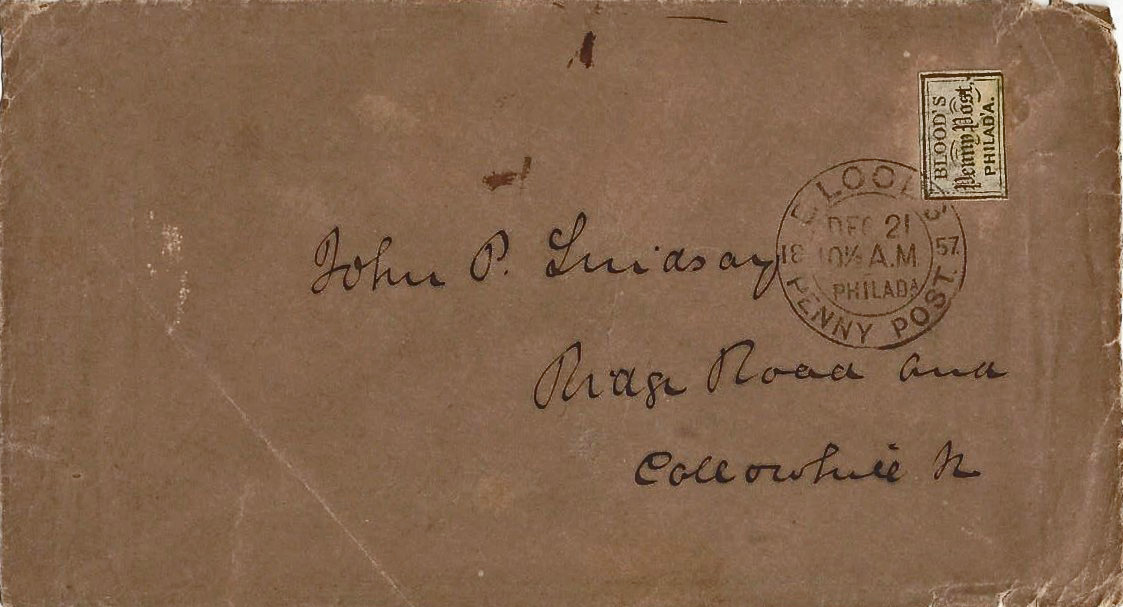 BLOOD'S
Penny Post,
PHILAD'A.
BLOOD'S
DEC 21
18 10½ A.M. 57.
PHILADA
PENNY POST.
John P. Lindsay
Ridge Road and
Collowhill